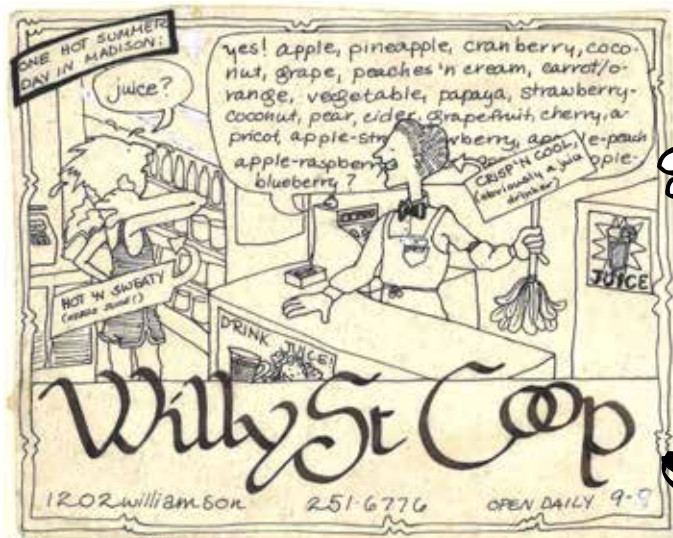 ONE HOT SUMMER
DAY IN MADISON:
juice?
yes! apple, pineapple, cranberry, coco-
nut, grape, peaches 'n cream, carrot/o-
range, vegetable, papaya, strawberry-
coconut, pear, cider, grapefruit, cherry, a-
pricot, apple-str wberry, ap e-peach
apple-raspberr pple-
blueberry?
CRISP 'N COOL,
(obviously a juice
drinker)
HOT 'N SWEATY
(needs juice!)
JUICE
DRINK JUICE!
Willy St Coop
1202 williamson 251-6776 OPEN DAILY 9-8